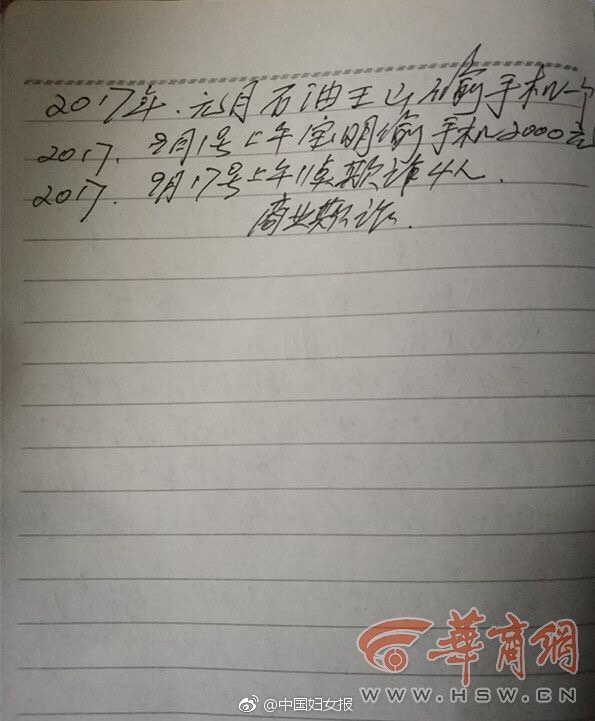 2017年.元月石油王山偷手机一个
2017. 9月1号上午宝明偷手机2000元
2017. 9月17号上午11点欺诈4人.
商业欺诈.
華商網
WWW.HSW.CN
@中国妇女报